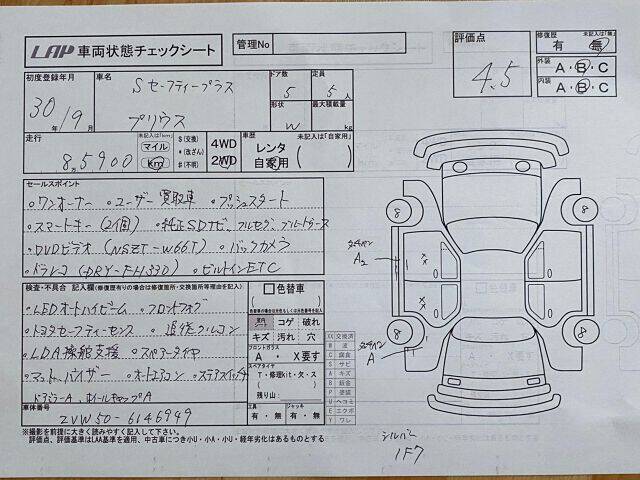 LAP 車両状態チェックシート
管理No
評価点
4.5
修復歴 未記入は「無」
有・無
外装 A・B・C
内装 A・B・C
初度登録年月
30年/9月
車名
Sセーフティープラス
プリウス
ドア数
5
定員
5人
形状
W
最大積載量
kg
走行 未記入は「km」
8,5900
マイル
km
$(交換)
*(改ざん)
#(不明)
4WD
2WD
車歴 未記入は「自家用」
レンタ
自家用
セールスポイント
・ワンオーナー ・ユーザー買取車 ・プッシュスタート
・スマートキー(2個) ・純正SDナビ、フルセグ、ブルートゥース
・DVDビデオ(NSZT-W66T) ・バックカメラ
・ドラレコ(DRY-FH33D) ・ビルトインETC
検査・不具合 記入欄(修復歴有りの場合は修復箇所・交換箇所等理由を記入)
・LEDオートハイビーム ・フロントフォグ
・トヨタセーフティーセンス ・追従クルコン
・LDA操舵支援 ・スペアータイヤ
・マット、バイザー ・オートエアコン ・ステアスイッチ
ドアミラーA、ホイールキャップA
色替車
コゲ 破れ
キズ 汚れ 穴
フロントガラス
A ・ X要す
スペアタイヤ
T・修理kit・欠・ス
残り山:
工具
有・無
ジャッキ
有・無
XX 交換済
W 波
C 腐食
S サビ
A キズ
B 鈑金
P 塗装
U ヘコミ
E エクボ
Y ワレ
車体番号
ZVW50-6146949
※撮影を前提に大きく読みやすく記入して下さい。
評価点、評価基準はLAA基準を適用、中古車につき小U・小A・小U・経年劣化はあるものとする
8
8
8
8
A2
A
シルバー
1F7